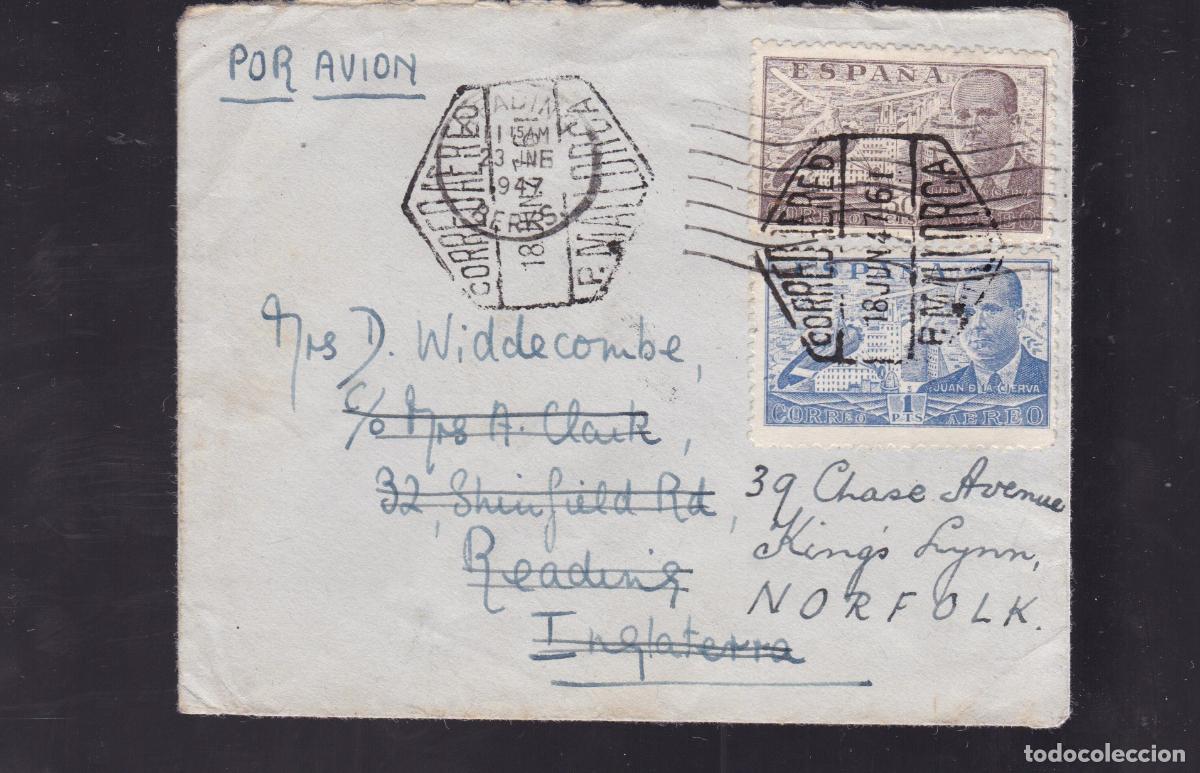 POR AVION
CORREO AEREO
P. MALLORCA
18 JUN
1 15 AM
23 JNE
1947
BERKS
ESPAÑA
50
CORREO AEREO
CORREO AEREO
18 JUN 47 6T
P. MALLORCA
ESPAÑA
JUAN DE LA CIERVA
1
PTS
CORREO AEREO
Mrs D. Widdecombe,
c/o Mrs A. Clark,
32, Shinfield Rd,
Reading
Inglaterra
39 Chase Avenue
King's Lynn,
NORFOLK.
todocoleccion